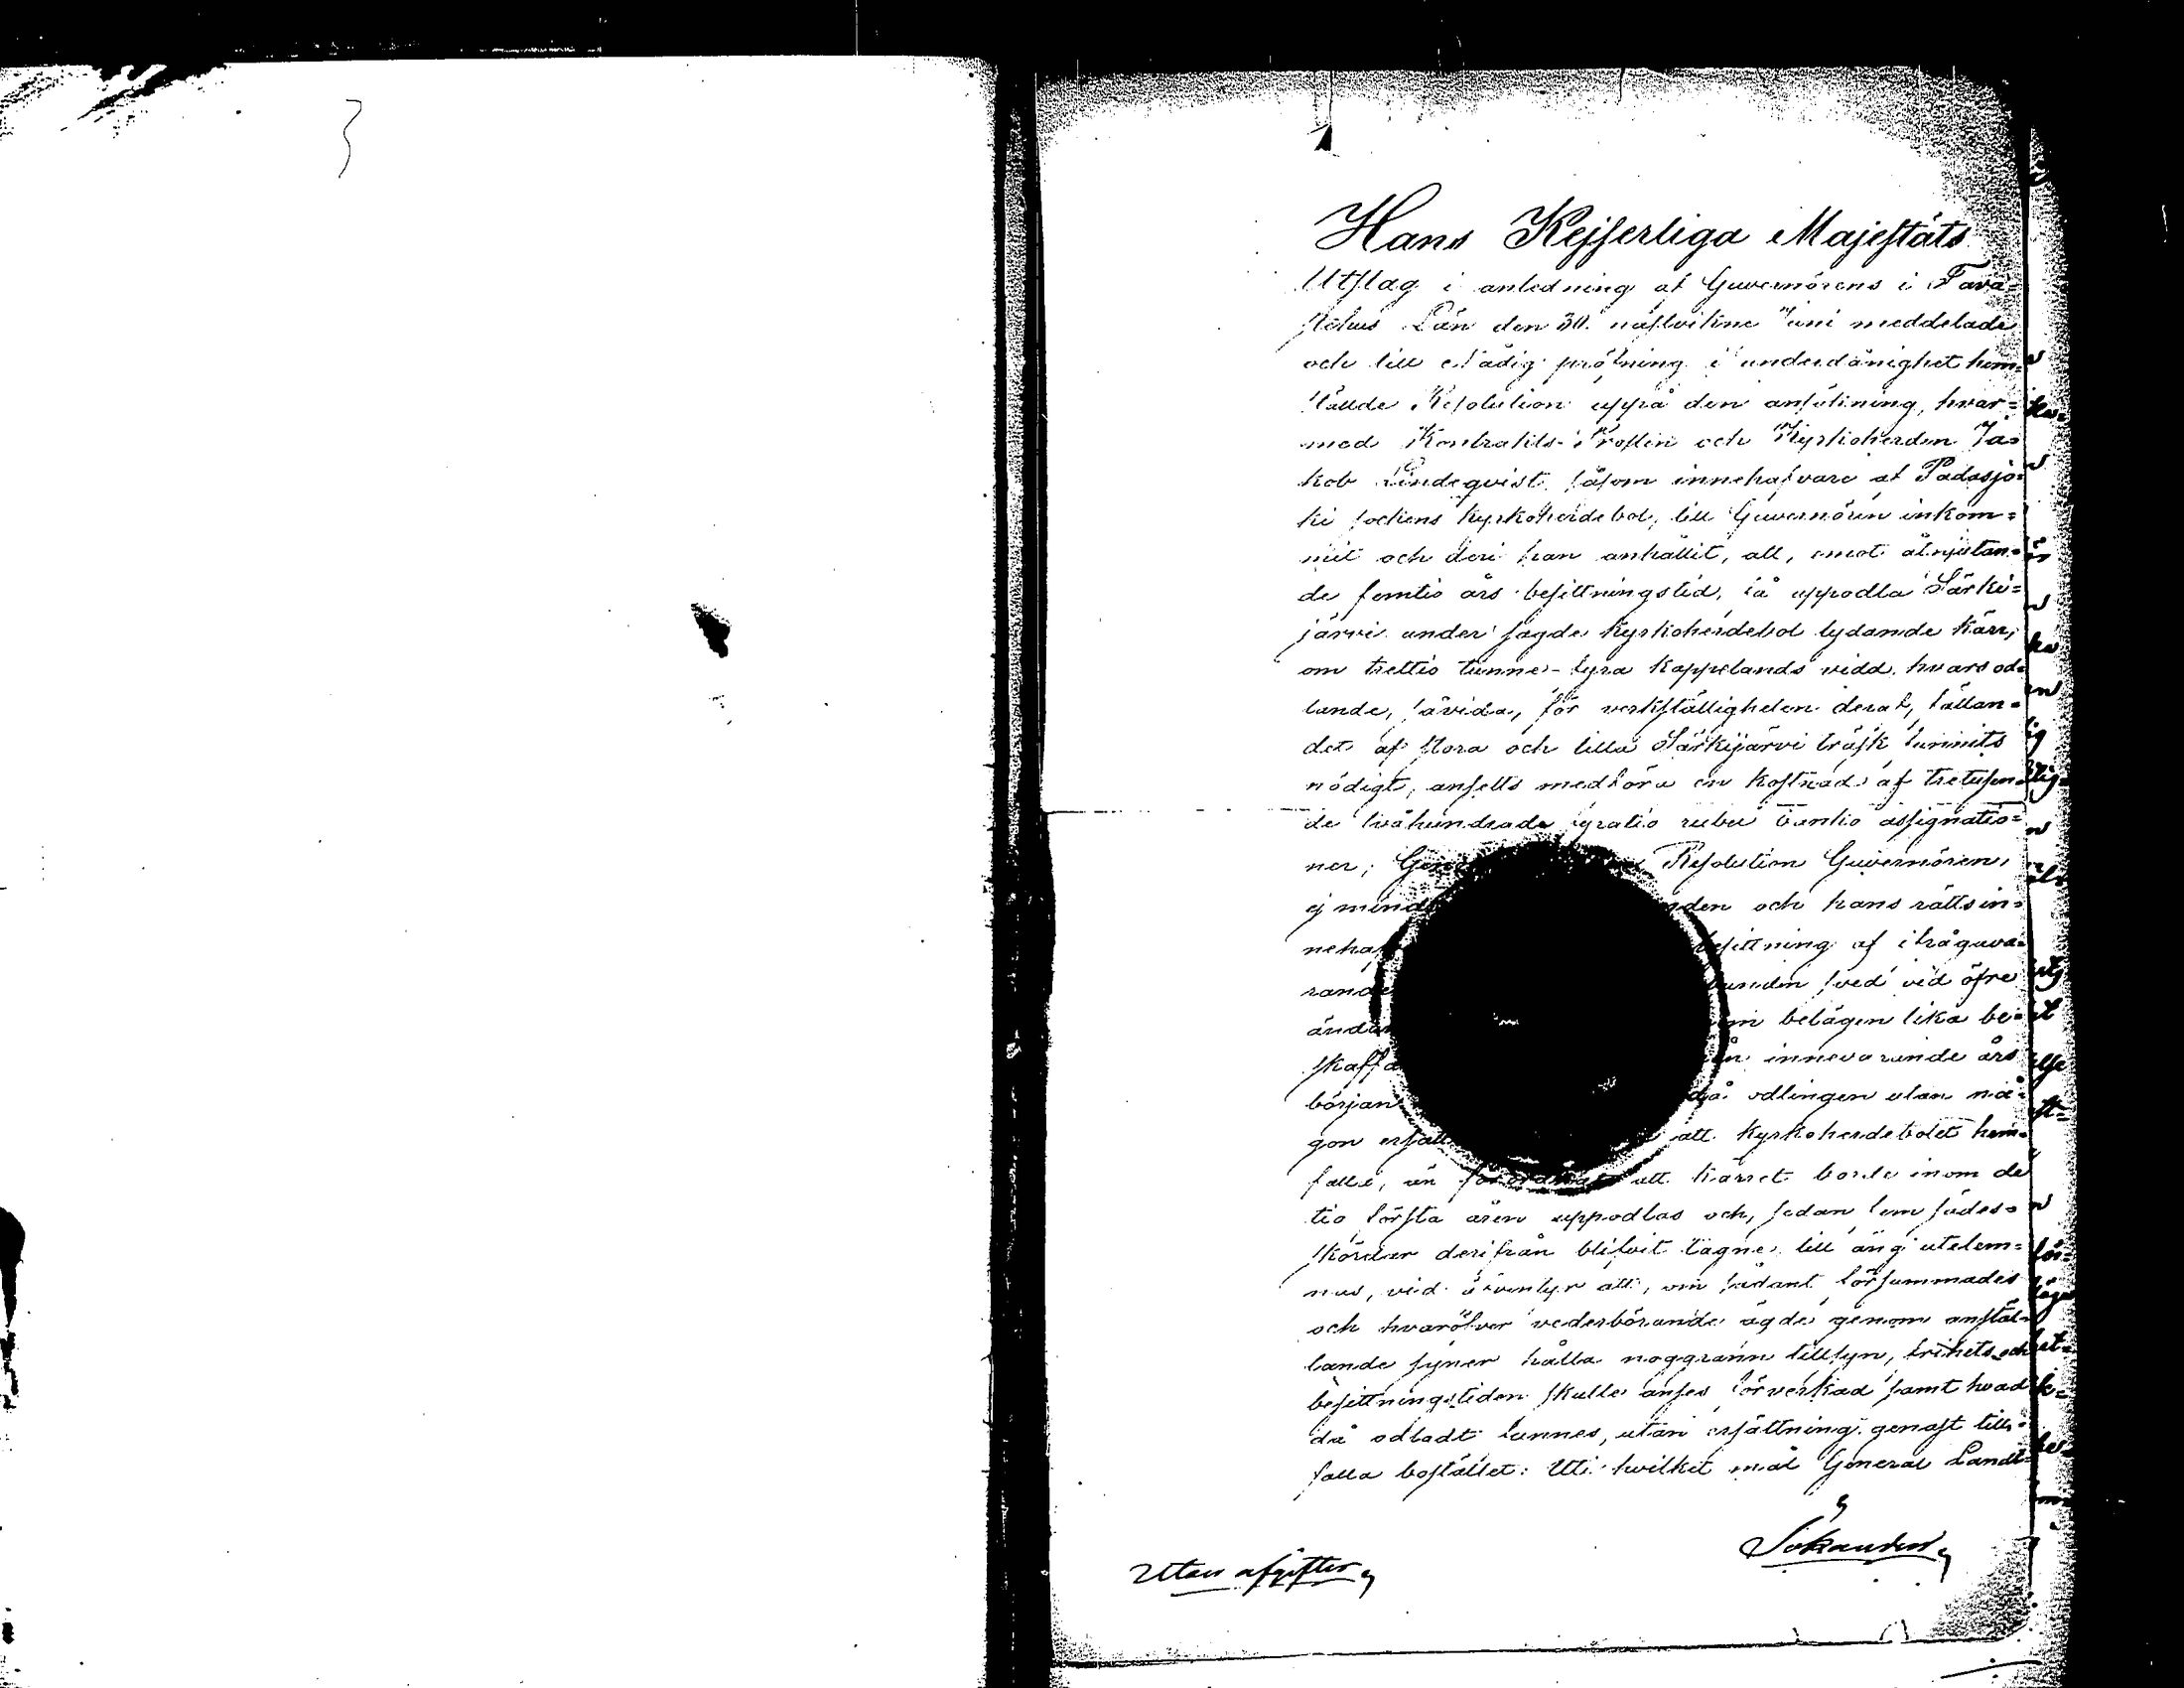 Hans Kejserliga Majestäts
Utslag i anledning af Guvernörens i Tava-
stehus Län den 30. nästvikne Juni meddelade
och till Nådig pröfning i underdånighet hem-
stälde Resolution uppå den ansökning, hvar-
med Kontrakts-Prosten och Kyrkoherden Ja-
kob Lindeqvist, såsom innehafvare af Padasjo-
ki sockens kyrkoherdebol, till Guvernören inkom-
mit och deri han anhållit, att, emot åtnjutan-
de femtio års besittningstid, få uppodla Särki-
järvi under sagde Kyrkoherdebol lydande kärr,
om trettio tunne- fyra kappelands vidd, hvars od-
lande, såvida, för verkställigheten deraf, fällan-
det af stora och lilla Särkijärvi träsk funnits
nödigt, ansetts medföra en kostnad af tretusen-
de tvåhundrade fyratio rubel banko assignatio-
ner; Resolution Guvernören,
ej mind och hans rättsin-
nehaf besittning af ifråguva-
rande bunden sved vid öfre
ända belägen lika be-
skaffa innevarande års
början då odlingen utan nå-
gon ersätt att Kyrkoherdebolet hem-
falle, än förordnat att kärret borde inom de
tio första åren uppodlas och, sedan fem sädes-
skördar derifrån blifvit tagne, till äng utelem-
nas, vid äfventyr att, om sådant försummades
och hvaröfver vederbörande ägde genom anstäl-
lande syner hålla noggrann tillsyn, frihets och
besittningstiden skulle anses förverkad samt hvad
då odladt funnes, utan ersättning genast till-
falla bostället: Uti hvilket mål General Landt-
Sökanden,
Utan afgifter,